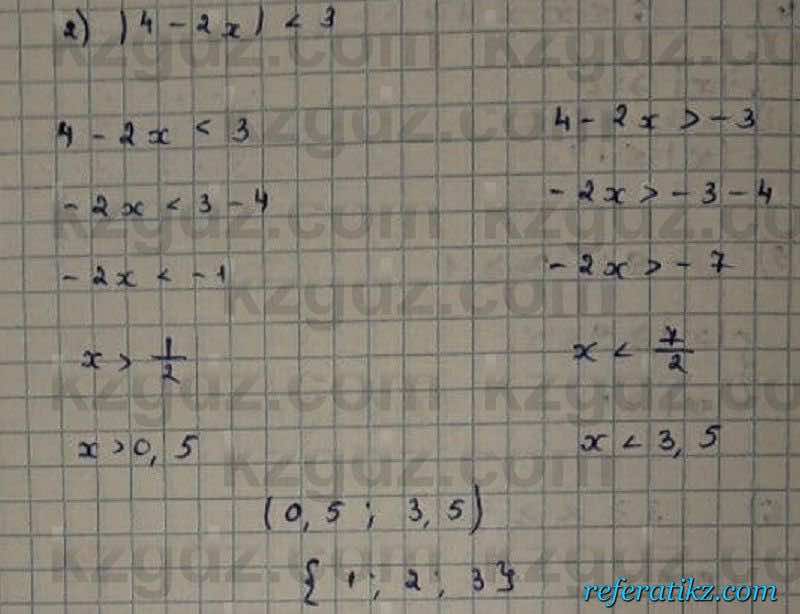 2) |4 - 2x| < 3
4 - 2x < 3
4 - 2x > -3
-2x < 3 - 4
-2x > -3 - 4
-2x < -1
-2x > -7
x > 1/2
x < 7/2
x > 0,5
x < 3,5
(0,5 ; 3,5)
{1 ; 2 ; 3}
kzgdz.com
referatikz.com